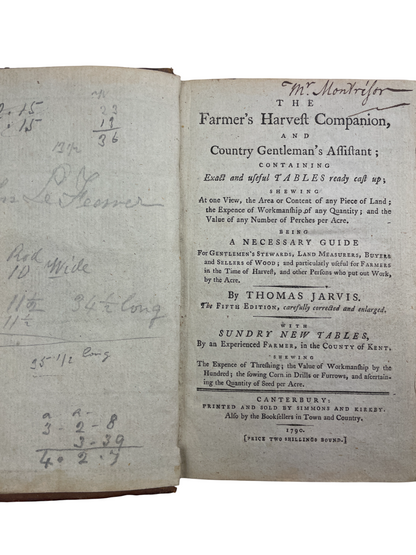 15
15
33
19
36
Rod
10 Wide
11 1/2 34 1/2 Long
11 1/2
35-1/2 Long
a
3 - 2 - 8
3 - 39
4 - 2 - 7
Mr. Montrésor
THE
Farmer's Harveſt Companion,
AND
Country Gentleman's Aſſiſtant;
CONTAINING
Exact and uſeful TABLES ready caſt up;
SHEWING
At one View, the Area or Content of any Piece of Land;
the Expence of Workmanſhip of any Quantity; and the
Value of any Number of Perches per Acre.
BEING
A NECESSARY GUIDE
For GENTLEMEN'S STEWARDS, LAND MEASURERS, BUYERS
and SELLERS of WOOD; and particularly uſeful for FARMERS
in the Time of Harveſt, and other Perſons who put out Work,
by the Acre.
By THOMAS JARVIS.
The FIFTH EDITION, carefully corrected and enlarged.
WITH
SUNDRY NEW TABLES,
By an Experienced FARMER, in the COUNTY OF KENT,
SHEWING
The Expence of Threſhing; the Value of Workmanſhip by the
Hundred; the ſowing Corn in Drills or Furrows, and aſcertain-
ing the Quantity of Seed per Acre.
CANTERBURY:
PRINTED AND SOLD BY SIMMONS AND KIRKBY.
Alſo by the Bookſellers in Town and Country.
1790.
[PRICE TWO SHILLINGS BOUND.]